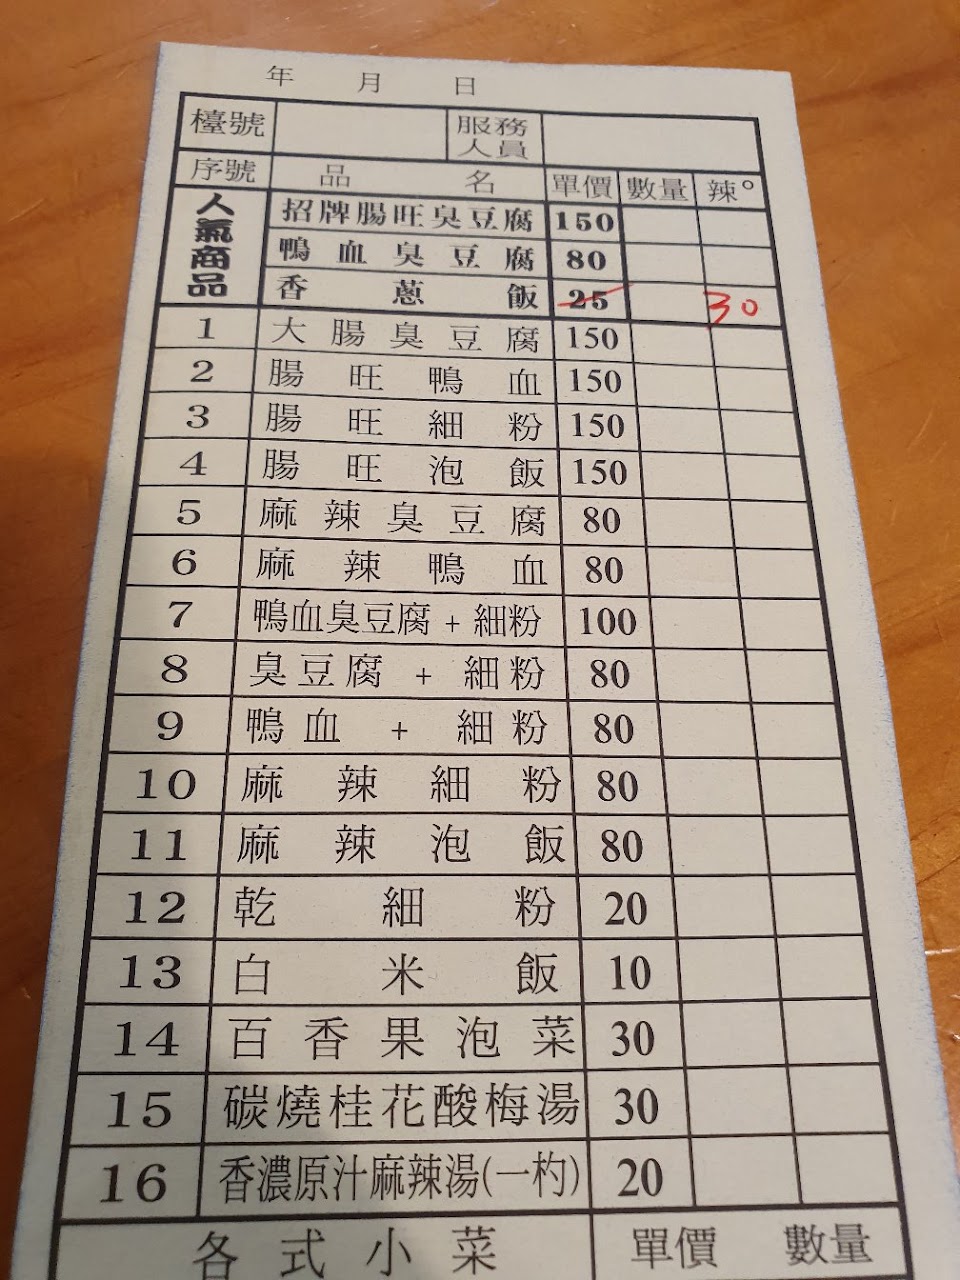 年 月 日
檯號 服務人員
序號 品名 單價 數量 辣°
人氣商品
招牌腸旺臭豆腐 150
鴨血臭豆腐 80
香蔥飯 25 30
1 大腸臭豆腐 150
2 腸旺鴨血 150
3 腸旺細粉 150
4 腸旺泡飯 150
5 麻辣臭豆腐 80
6 麻辣鴨血 80
7 鴨血臭豆腐+細粉 100
8 臭豆腐+細粉 80
9 鴨血+細粉 80
10 麻辣細粉 80
11 麻辣泡飯 80
12 乾細粉 20
13 白米飯 10
14 百香果泡菜 30
15 碳燒桂花酸梅湯 30
16 香濃原汁麻辣湯(一杓) 20
各式小菜 單價 數量